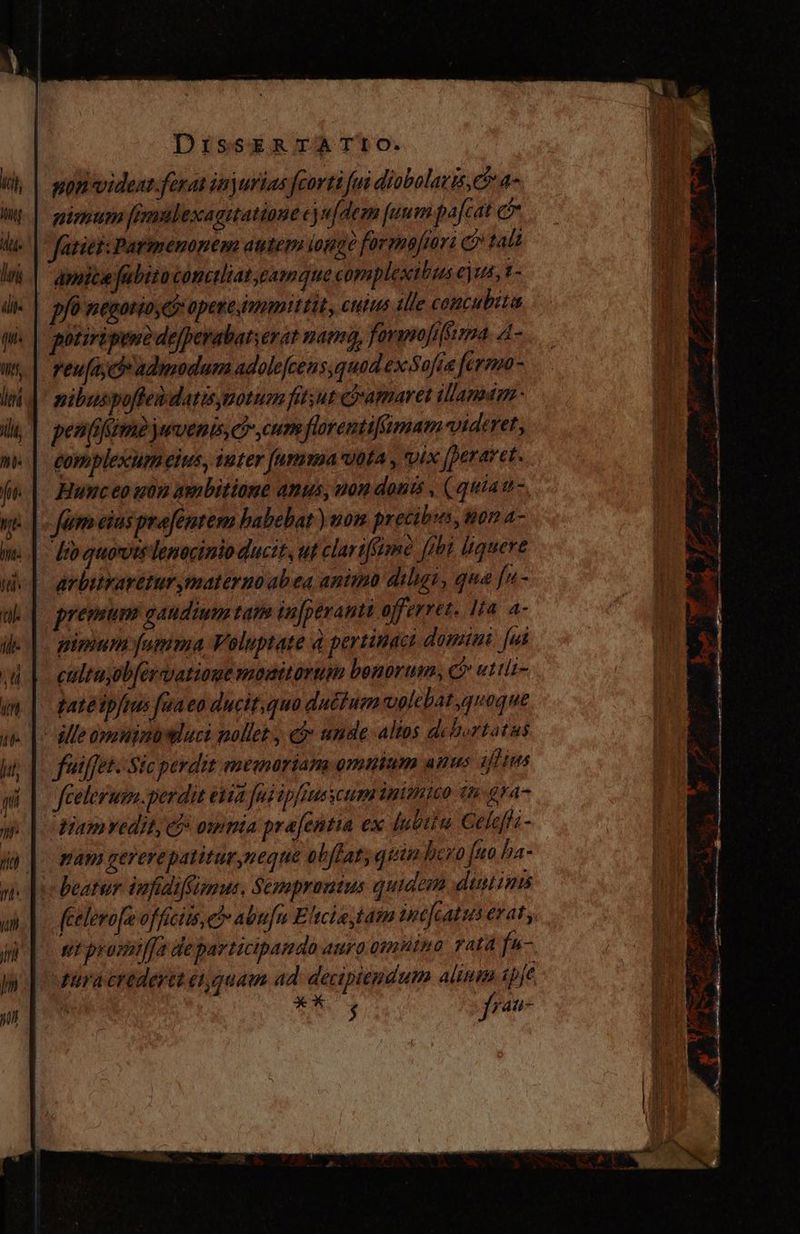 DISSERTATIO.
non videat. ferat injurias scorti sui diobolaris, & a-
nimum simul exagitatione ejusdem suum pascat &
satiet: Parmenonem autem longè formosiori & tali
amicæ subito conciliat, eamque complexibus ejus, i-
pso negotio, & opere, immittit, cuius ille concubitu
potiri penè desperabat; erat namq, formosissima A-
reusa, & admodum adolescens, quod ex Sosiæ sermo-
nibus postea datis, notum fit, ut & amaret illam im-
pensissimè juvenis, & , cum florentissimam videret,
complexum eius, inter summa vota, vix speraret.
Hunc eo non ambitione anus, non donis, (quia u-
sum eius præsentem habebat) non precibus, non a-
lio quovis lenocinio ducit, ut clarissimè sibi liquere
arbitraretur, materno ab ea animo diligi, quæ su-
premum gaudium tam insperanti offerret. Ita a-
nimum summa Voluptate à pertinaci domini sui
cultu, observatione monitorum bonorum, & utili-
tate ipsius sua eo ducit, quo ductum volebat, quoque
ille omnino duci nollet, & unde alios dehortatus
fuisset. Sic perdit memoriam omnium anus istius
scelerum. perdit etiã sui ipsius; cum inimico in gra-
tiam redit, & omnia præsentia ex lubitu Celesti-
nam gerere patitur, neque obstat, quin hero suo ha-
beatur infidissimus. Sempronius quidem diutinis
scelerosæ officiis, & abusu Eliciæ, tam inescatus erat,
ut promissa de participando auro omnino rata fu-
tura crederet ei, quam ad decipiendum alium ipse
** 5 frau-